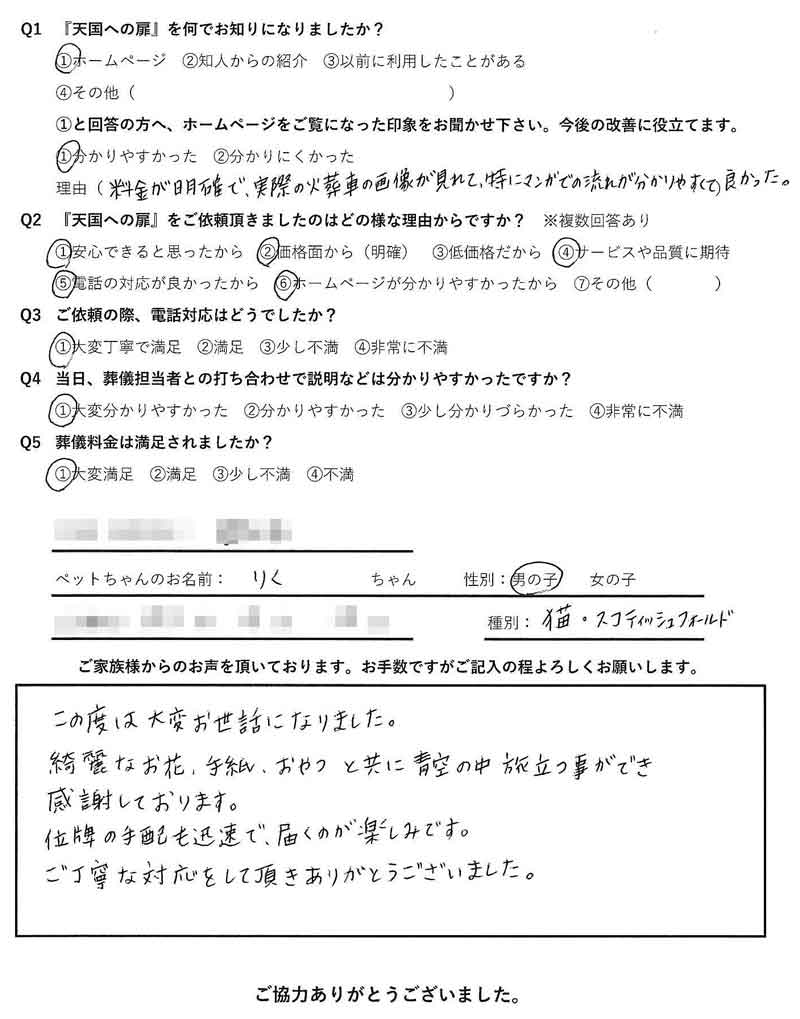 Q1 『天国への扉』を何でお知りになりましたか？
①ホームページ ②知人からの紹介 ③以前に利用したことがある
④その他（ ）
①と回答の方へ、ホームページをご覧になった印象をお聞かせ下さい。今後の改善に役立てます。
①分かりやすかった ②分かりにくかった
理由（料金が明確で、実際の火葬車の画像が見れて、特にマンガでの流れが分かりやすくて）良かった。
Q2 『天国への扉』をご依頼頂きましたのはどの様な理由からですか？ ※複数回答あり
①安心できると思ったから ②価格面から（明確） ③低価格だから ④サービスや品質に期待
⑤電話の対応が良かったから ⑥ホームページが分かりやすかったから ⑦その他（ ）
Q3 ご依頼の際、電話対応はどうでしたか？
①大変丁寧で満足 ②満足 ③少し不満 ④非常に不満
Q4 当日、葬儀担当者との打ち合わせで説明などは分かりやすかったですか？
①大変分かりやすかった ②分かりやすかった ③少し分かりづらかった ④非常に不満
Q5 葬儀料金は満足されましたか？
①大変満足 ②満足 ③少し不満 ④不満
ペットちゃんのお名前： りく ちゃん 性別：男の子 女の子
種別： 猫・スコティッシュフォールド
ご家族様からのお声を頂いております。お手数ですがご記入の程よろしくお願いします。
この度は大変お世話になりました。
綺麗なお花、手紙、おやつと共に青空の中旅立つ事ができ
感謝しております。
位牌の手配も迅速で、届くのが楽しみです。
ご丁寧な対応をして頂きありがとうございました。
ご協力ありがとうございました。